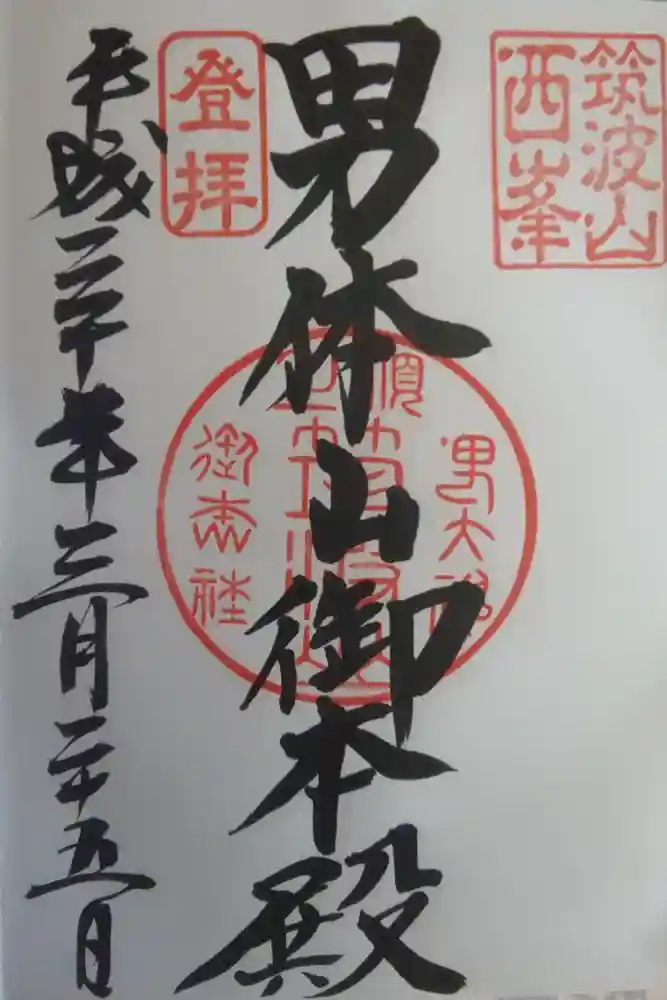 筑波山
西峯
男体山御本殿
男大神
御本社
登拝
平成三十年三月二十五日